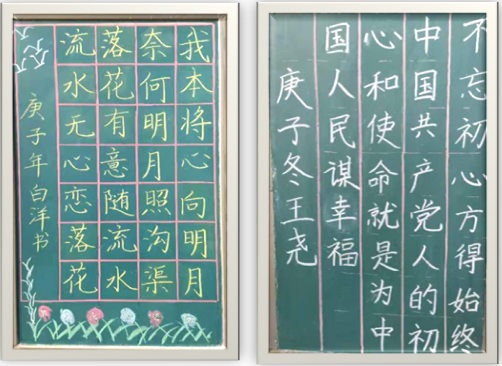 我本将心向明月
奈何明月照沟渠
落花有意随流水
流水无心恋落花
庚子年白洋书
不忘初心方得始终
中国共产党人的初
心和使命就是为中
国人民谋幸福
庚子冬王尧